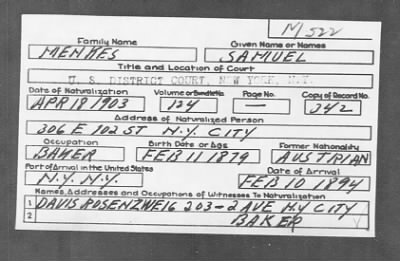 M/522
Family Name Given Name or Names
MENKES SAMUEL
Title and Location of Court
U. S. DISTRICT COURT, NEW YORK, N.Y.
Date of Naturalization Volume or Bundle No. Page No. Copy of Record No.
APR 18 1903 124 — 342
Address of Naturalized Person
306 E 102 ST N.Y. CITY
Occupation Birth Date or Age Former Nationality
BAKER FEB 11 1879 AUSTRIAN
Port of Arrival in the United States Date of Arrival
N.Y. N.Y. FEB 10 1894
Names, Addresses and Occupations of Witnesses To Naturalization
1 DAVIS ROSENZWEIG 203-2 AVE N.Y CITY
2 BAKER